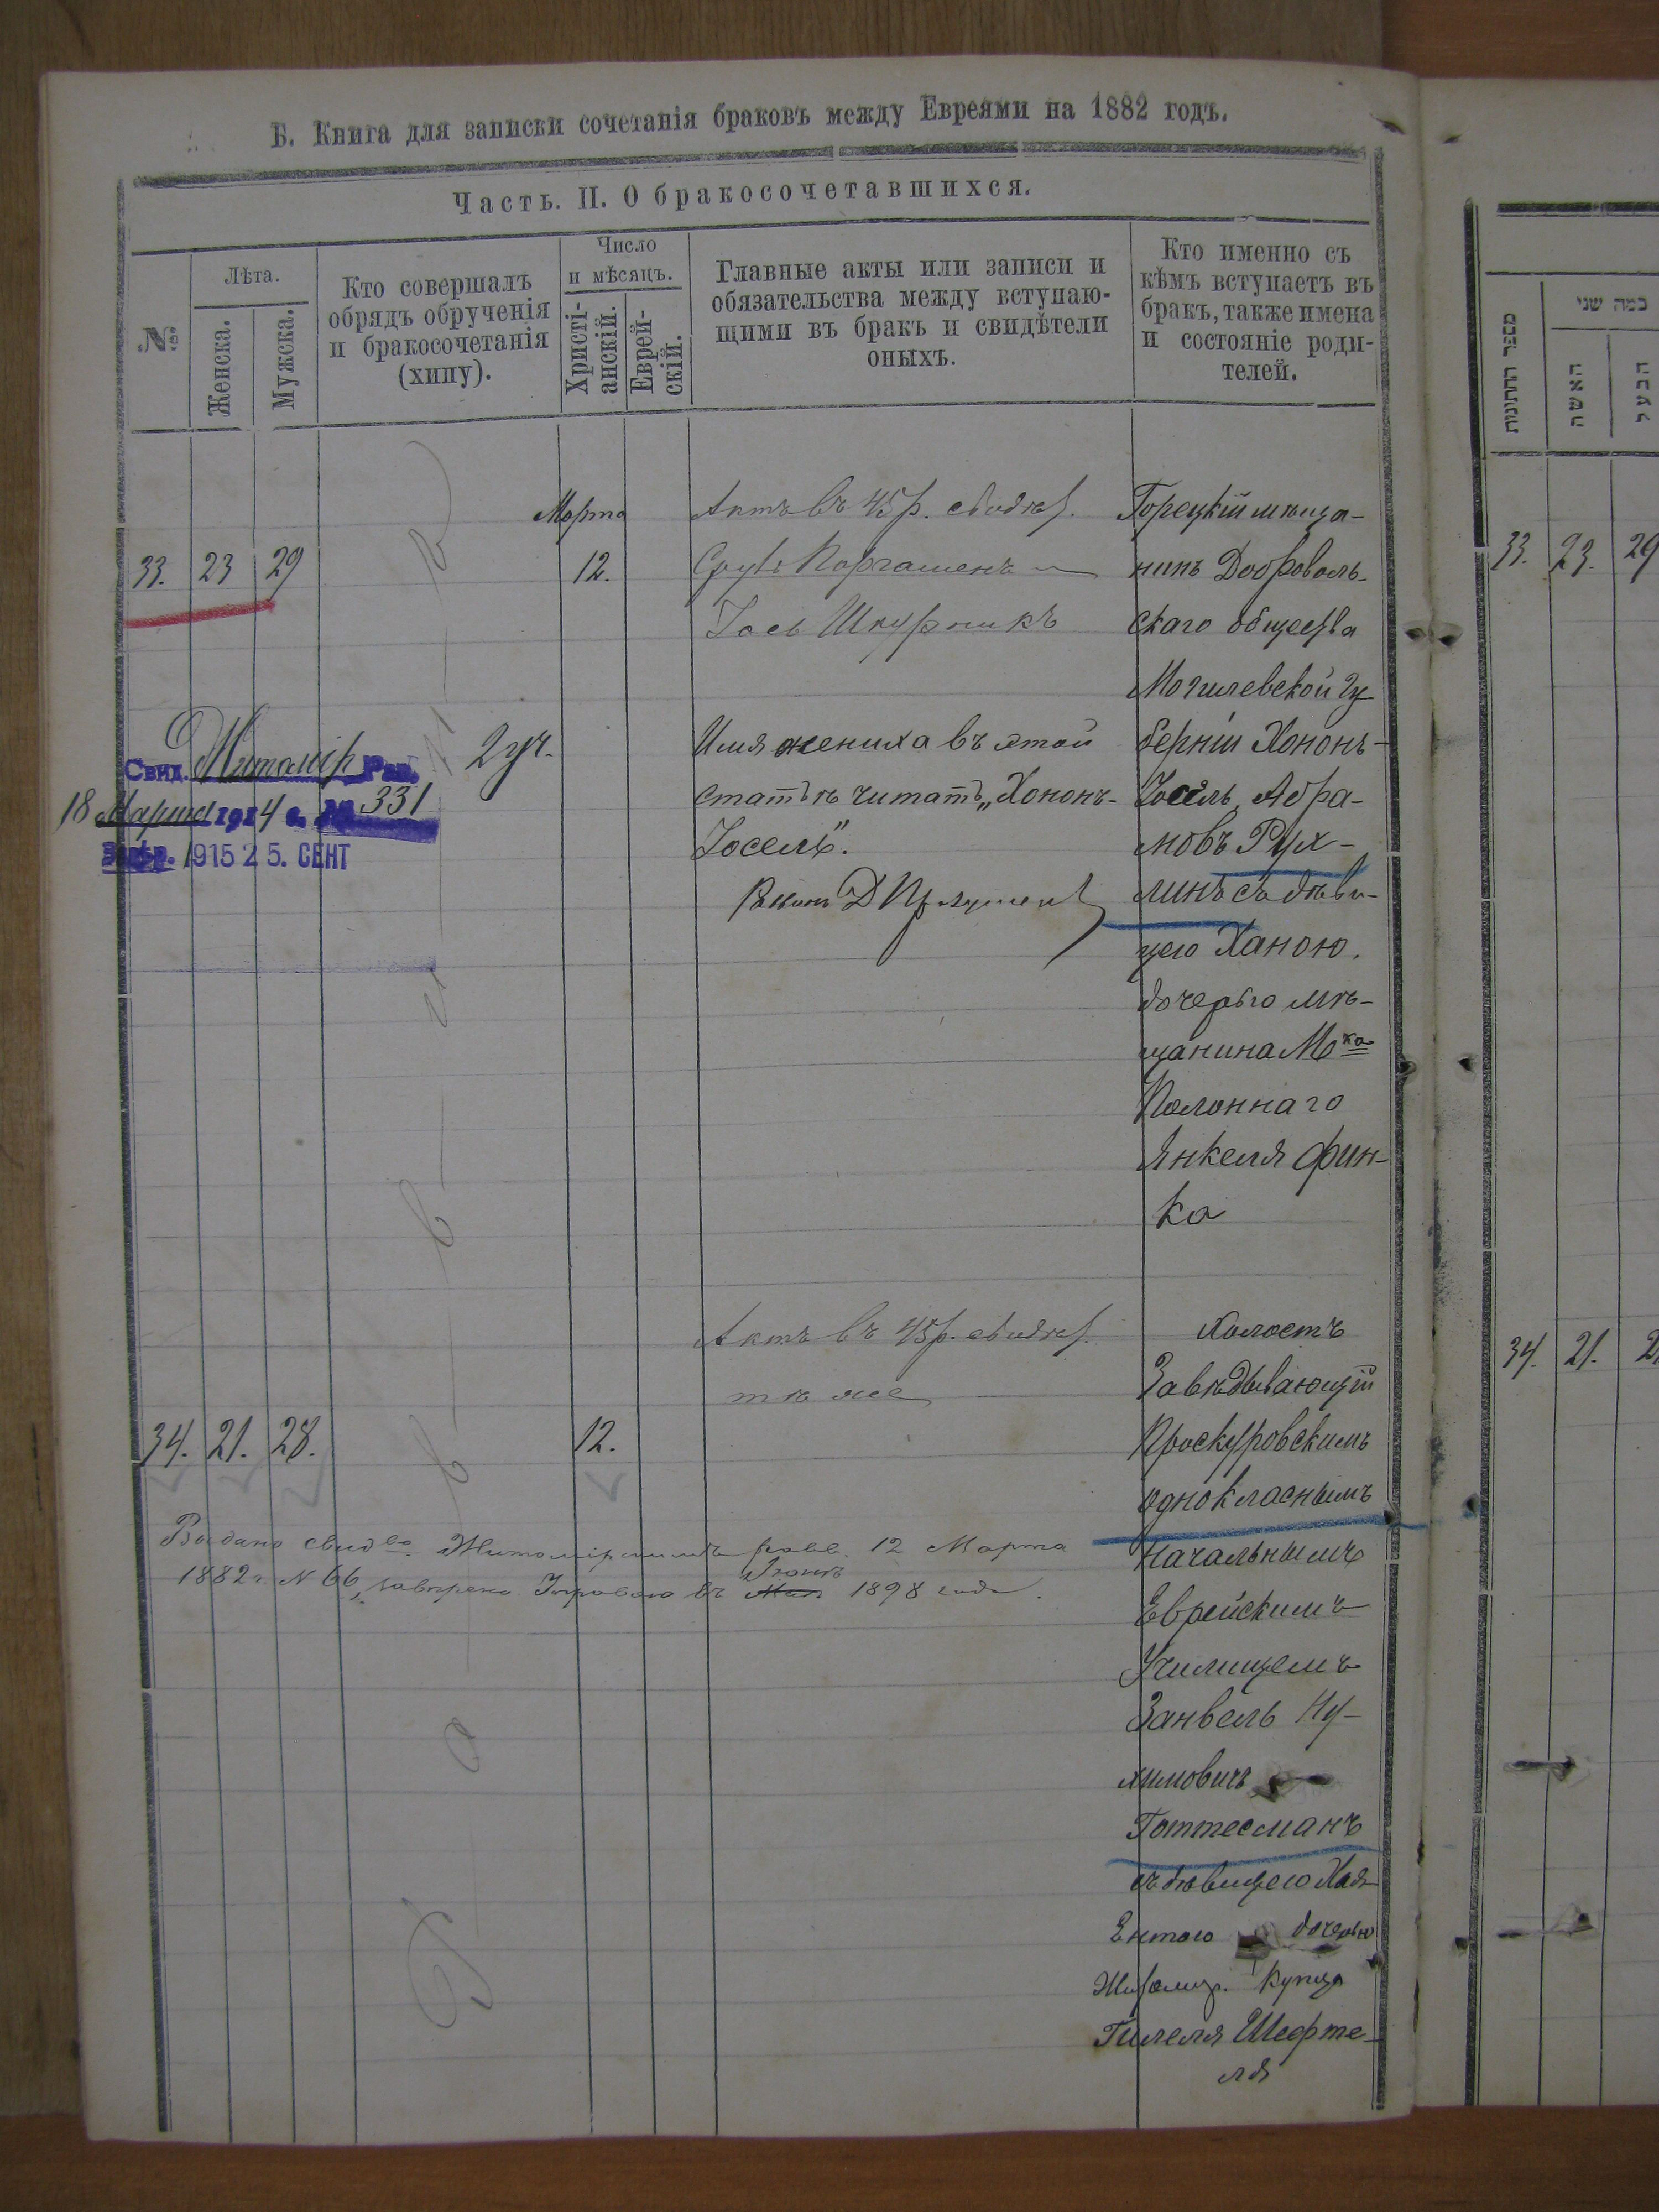 Б. Книга для записки сочетанія браковъ между Евреями на 1882 годъ.
Часть. II. О бракосочетавшихся.
№
Лѣта.
Женска.
Мужска.
Кто совершалъ
обрядъ обрученія
и бракосочетанія
(хипу).
Число
и мѣсяцъ.
Христі-
анскій.
Еврей-
скій.
Главные акты или записи и
обязательства между вступаю-
щими въ бракъ и свидѣтели
оныхъ.
Кто именно съ
кѣмъ вступаетъ въ
бракъ, также имена
и состояніе роди-
телей.
33. 23 29
Марта
12.
Актъ въ 45 р. свидѣт.
Іось Шкурникъ
Имя жениха въ этой
статьѣ читать „Хононъ-
Іосель".
Горецкій мѣща-
нинъ Доброволь-
скаго общества
Могилевской гу
берніи Хононъ-
Іосель Абра-
мовъ Рух-
линъ съ дѣви-
цею Ханою,
дочерью мѣ-
щанина Мка
Полоннаго
Янкеля Фин-
ка
2 уч.
Свид. Житомір Рав.
18 Марта 1914 г. № 331
1915 25. СЕНТ
34. 21. 28.
12.
Актъ въ 45 р. свидѣт.
тѣ же
Холостъ
Завѣдывающій
Проскуровскимъ
однокласнымъ
начальнымъ
Еврейскимъ
Училищемъ
Занвель Ну-
химовичъ
Готтесманъ
съ дѣвицею Хая
Ентою дочерью
Житомир. купца
Гилеля Шефте-
ля
Выдано свидво Житомірскимъ равв. 12 Марта
1882 г. № 66, Іюнѣ 1898 года.
מספר החתונות
כמה שני
האשה
הבעל
33. 23. 29
34. 21.